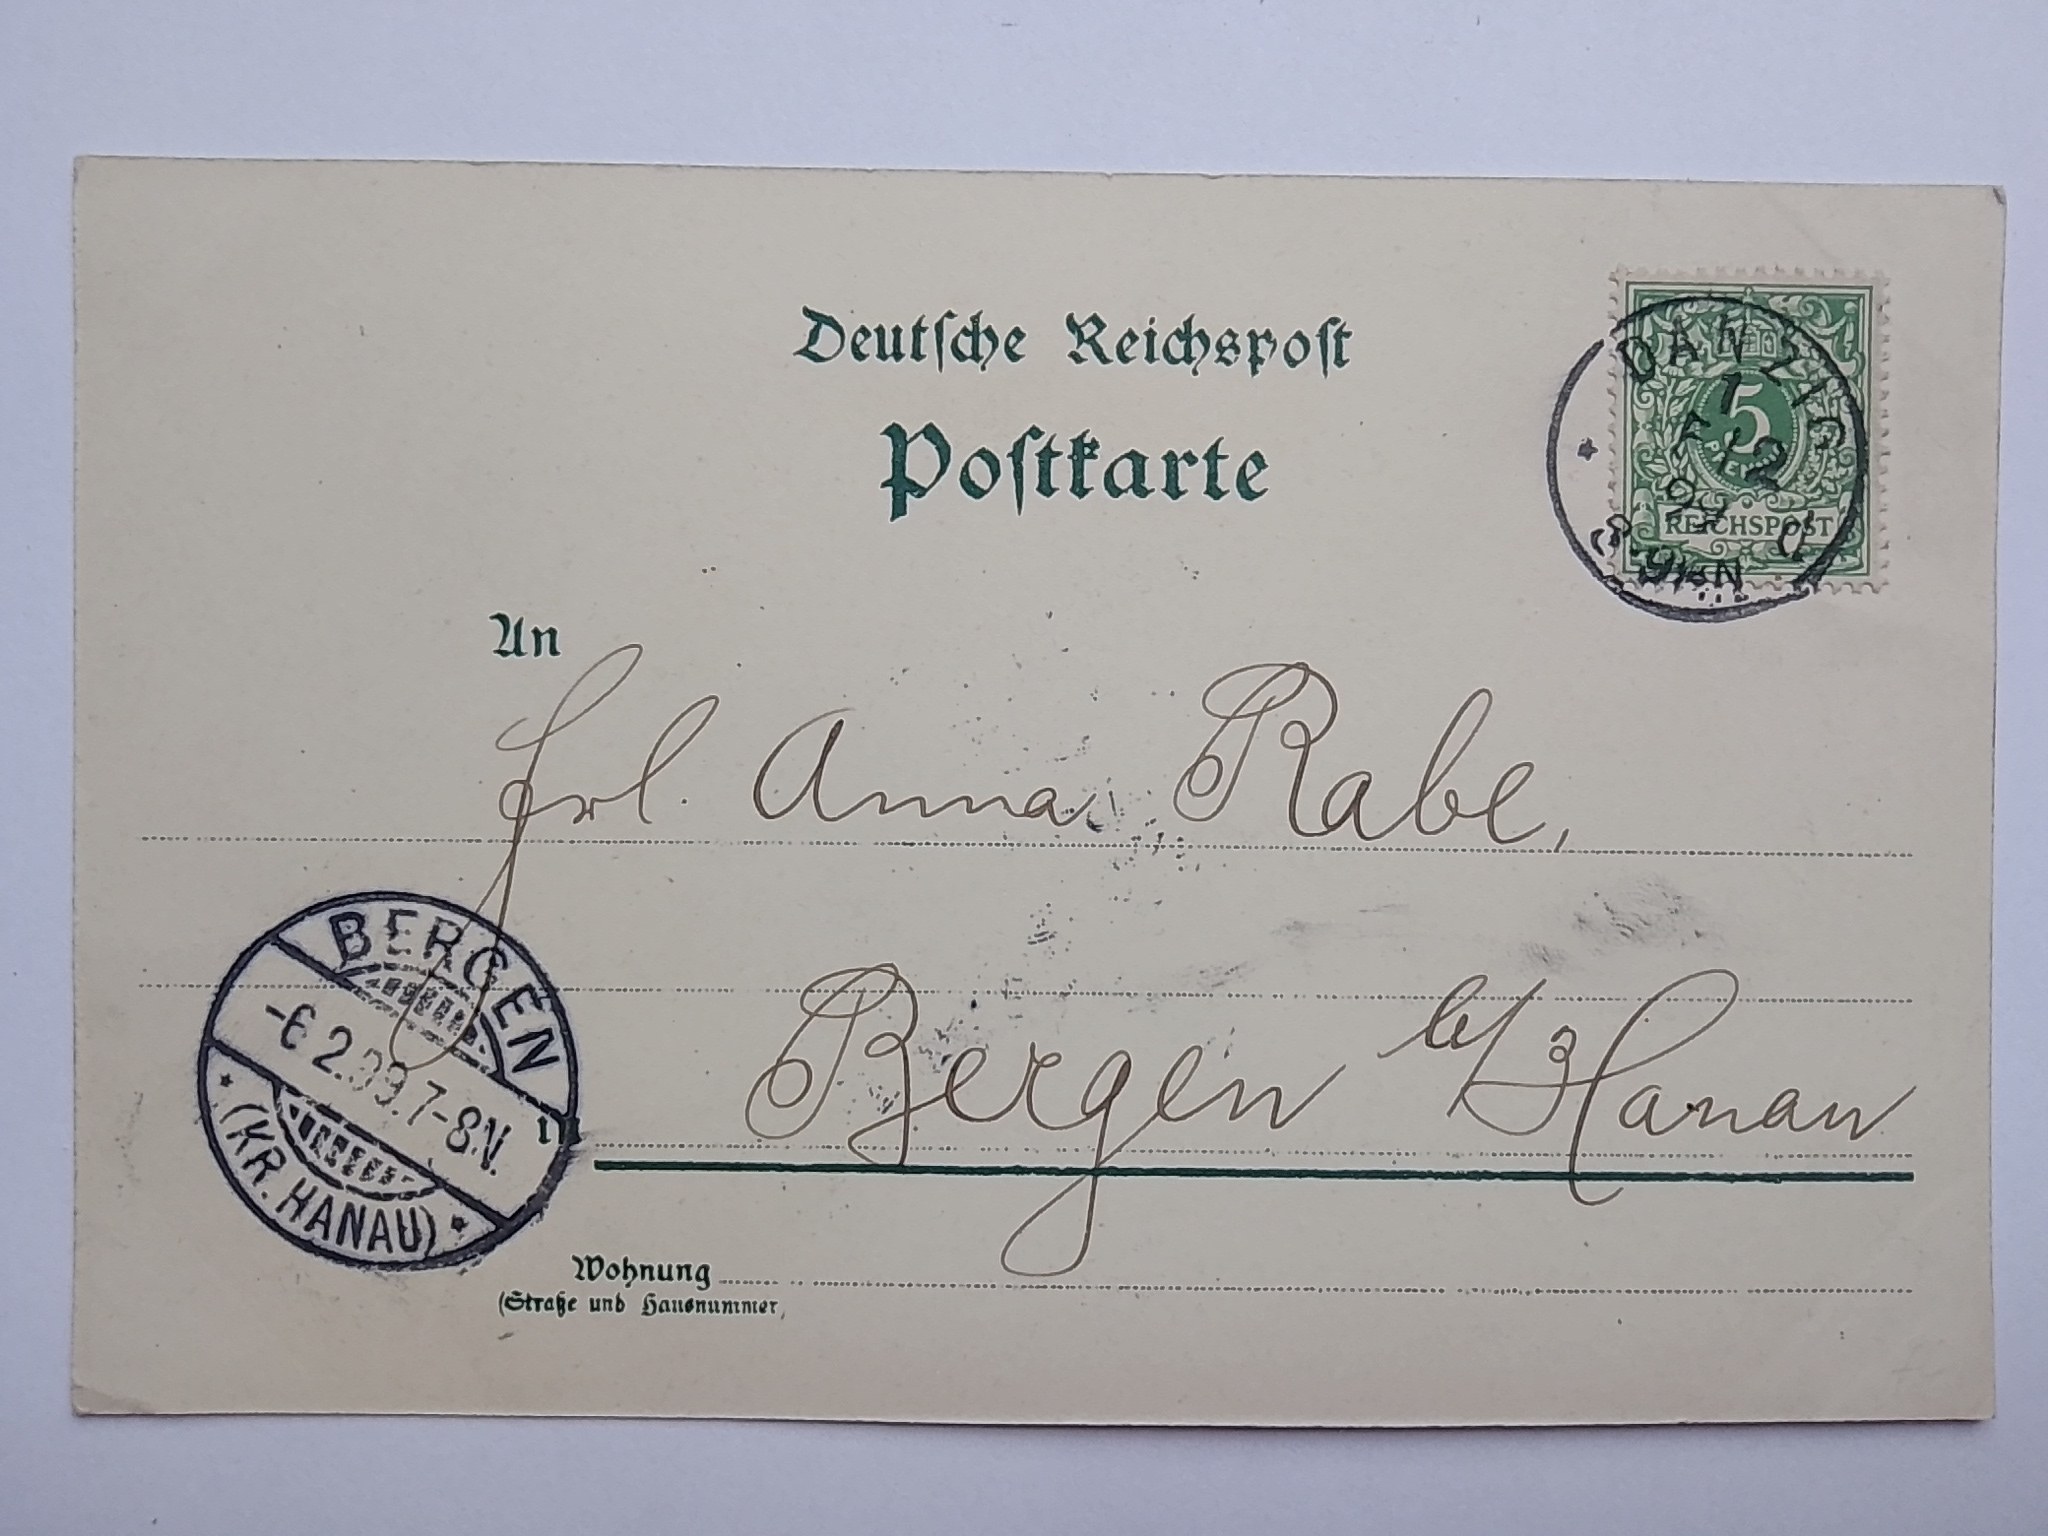 Deutsche Reichspost
Postkarte
DANZIG
1
5
PFENNIG
2
99
REICHSPOST
8-9N
An
Frl. Anna Rabe,
BERGEN
-6 2.99.7-8.N.
(KR. HANAU)
in
Bergen b/Hanau
Wohnung
(Straße und Hausnummer)